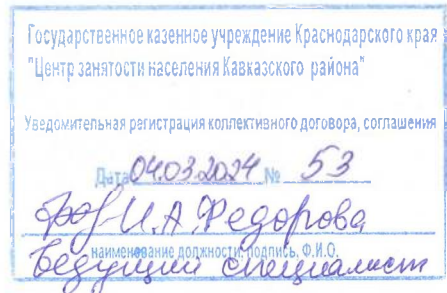 Государственное казенное учреждение Краснодарского края
"Центр занятости населения Кавказского района"
Уведомительная регистрация коллективного договора, соглашения
Дата 04.03.2024 № 53
И.А Федорова
наименование должности, подпись, Ф.И.О.
ведущий специалист